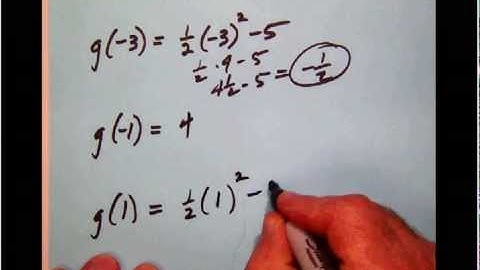 g(-3) = ½(-3)² - 5
½ · 9 - 5
4½ - 5 = -½
g(-1) = 4
g(1) = ½(1)² -